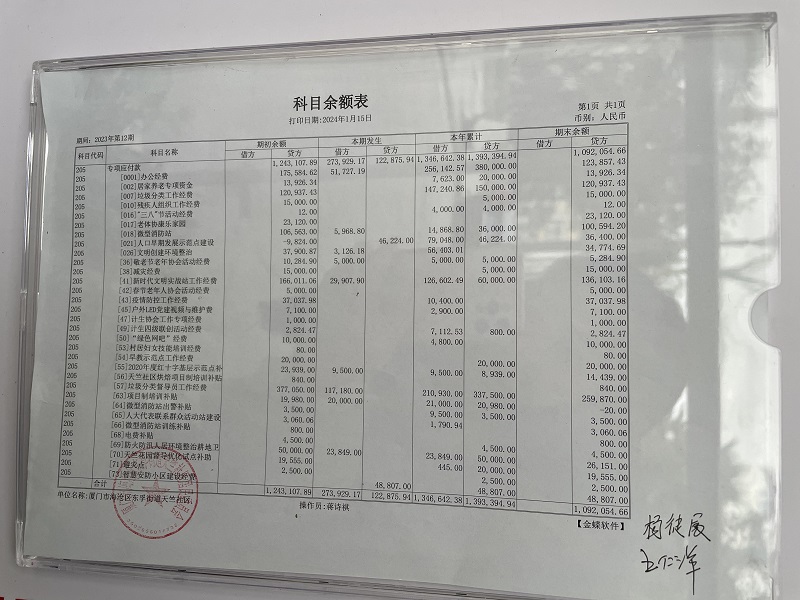 科目余额表
打印日期:2024年1月15日
第1页 共1页
期间: 2023年第12期
币别: 人民币
科目代码 科目名称 期初余额 本期发生 本年累计 期末余额
借方 贷方 借方 贷方 借方 贷方 借方 贷方
205 专项应付款 1,243,107.89 273,929.17 122,875.94 1,346,642.38 1,393,394.94 1,092,054.66
205 [0001]办公经费 175,584.62 51,727.19 256,142.57 380,000.00 123,857.43
205 [002]居家养老专项资金 13,926.34 7,623.00 20,000.00 13,926.34
205 [007]垃圾分类工作经费 120,937.43 147,240.86 150,000.00 120,937.43
205 [010]残疾人组织工作经费 15,000.00 5,000.00 15,000.00
205 [016]"三八"节活动经费 12.00 4,000.00 4,000.00 12.00
205 [017]老体协康乐家园 23,120.00 23,120.00
205 [018]微型消防站 106,563.00 5,968.80 14,868.80 36,000.00 100,594.20
205 [021]人口早期发展示范点建设 -9,824.00 46,224.00 79,048.00 46,224.00 36,400.00
205 [026]文明创建环境整治 37,900.87 3,126.18 56,403.01 34,774.69
205 [36]敬老节老年协会活动经费 10,284.90 5,000.00 5,000.00 5,000.00 5,284.90
205 [38]减灾经费 15,000.00 5,000.00 15,000.00
205 [41]新时代文明实战站工作经费 166,011.06 29,907.90 126,602.49 60,000.00 136,103.16
205 [42]春节老年人协会活动经费 5,000.00 5,000.00
205 [43]疫情防控工作经费 37,037.98 10,400.00 37,037.98
205 [45]户外LED党建视频与维护费 7,100.00 2,900.00 7,100.00
205 [47]计生协会工作专项经费 1,000.00 1,000.00
205 [49]计生四级联创活动经费 2,824.47 7,112.53 800.00 2,824.47
205 [50]"绿色网吧"经费 10,000.00 4,800.00 10,000.00
205 [53]村居妇女技能培训经费 80.00 80.00
205 [54]早教示范点工作经费 20,000.00 20,000.00 20,000.00
205 [55]2020年度红十字基层示范点补 23,939.00 9,500.00 9,500.00 8,939.00 14,439.00
205 [56]天竺社区烘焙项目制培训补贴 840.00 840.00
205 [57]垃圾分类督导员工作经费 377,050.00 117,180.00 210,930.00 337,500.00 259,870.00
205 [63]项目制培训补贴 19,980.00 20,000.00 21,000.00 20,980.00 -20.00
205 [64]微型消防站出警补贴 3,500.00 9,500.00 3,500.00 3,500.00
205 [65]人大代表联系群众活动站建设 3,060.06 1,790.94 3,060.06
205 [66]微型消防站训练补贴 800.00 800.00
205 [68]电费补贴 4,500.00 4,500.00 4,500.00
205 [69]防火防汛人居环境整治耕地卫 50,000.00 23,849.00 23,849.00 50,000.00 26,151.00
205 [70]天竺花园督导优化试点补贴 19,555.00 445.00 20,000.00 19,555.00
205 [71]微火点 2,500.00 2,500.00 2,500.00
205 [73]智慧安防小区建设经费 48,807.00 48,807.00 48,807.00
合计 1,243,107.89 273,929.17 122,875.94 1,346,642.38 1,393,394.94 1,092,054.66
单位名称:厦门市海沧区东孚街道天竺社区
操作员:蒋诗祺
【金蝶软件】